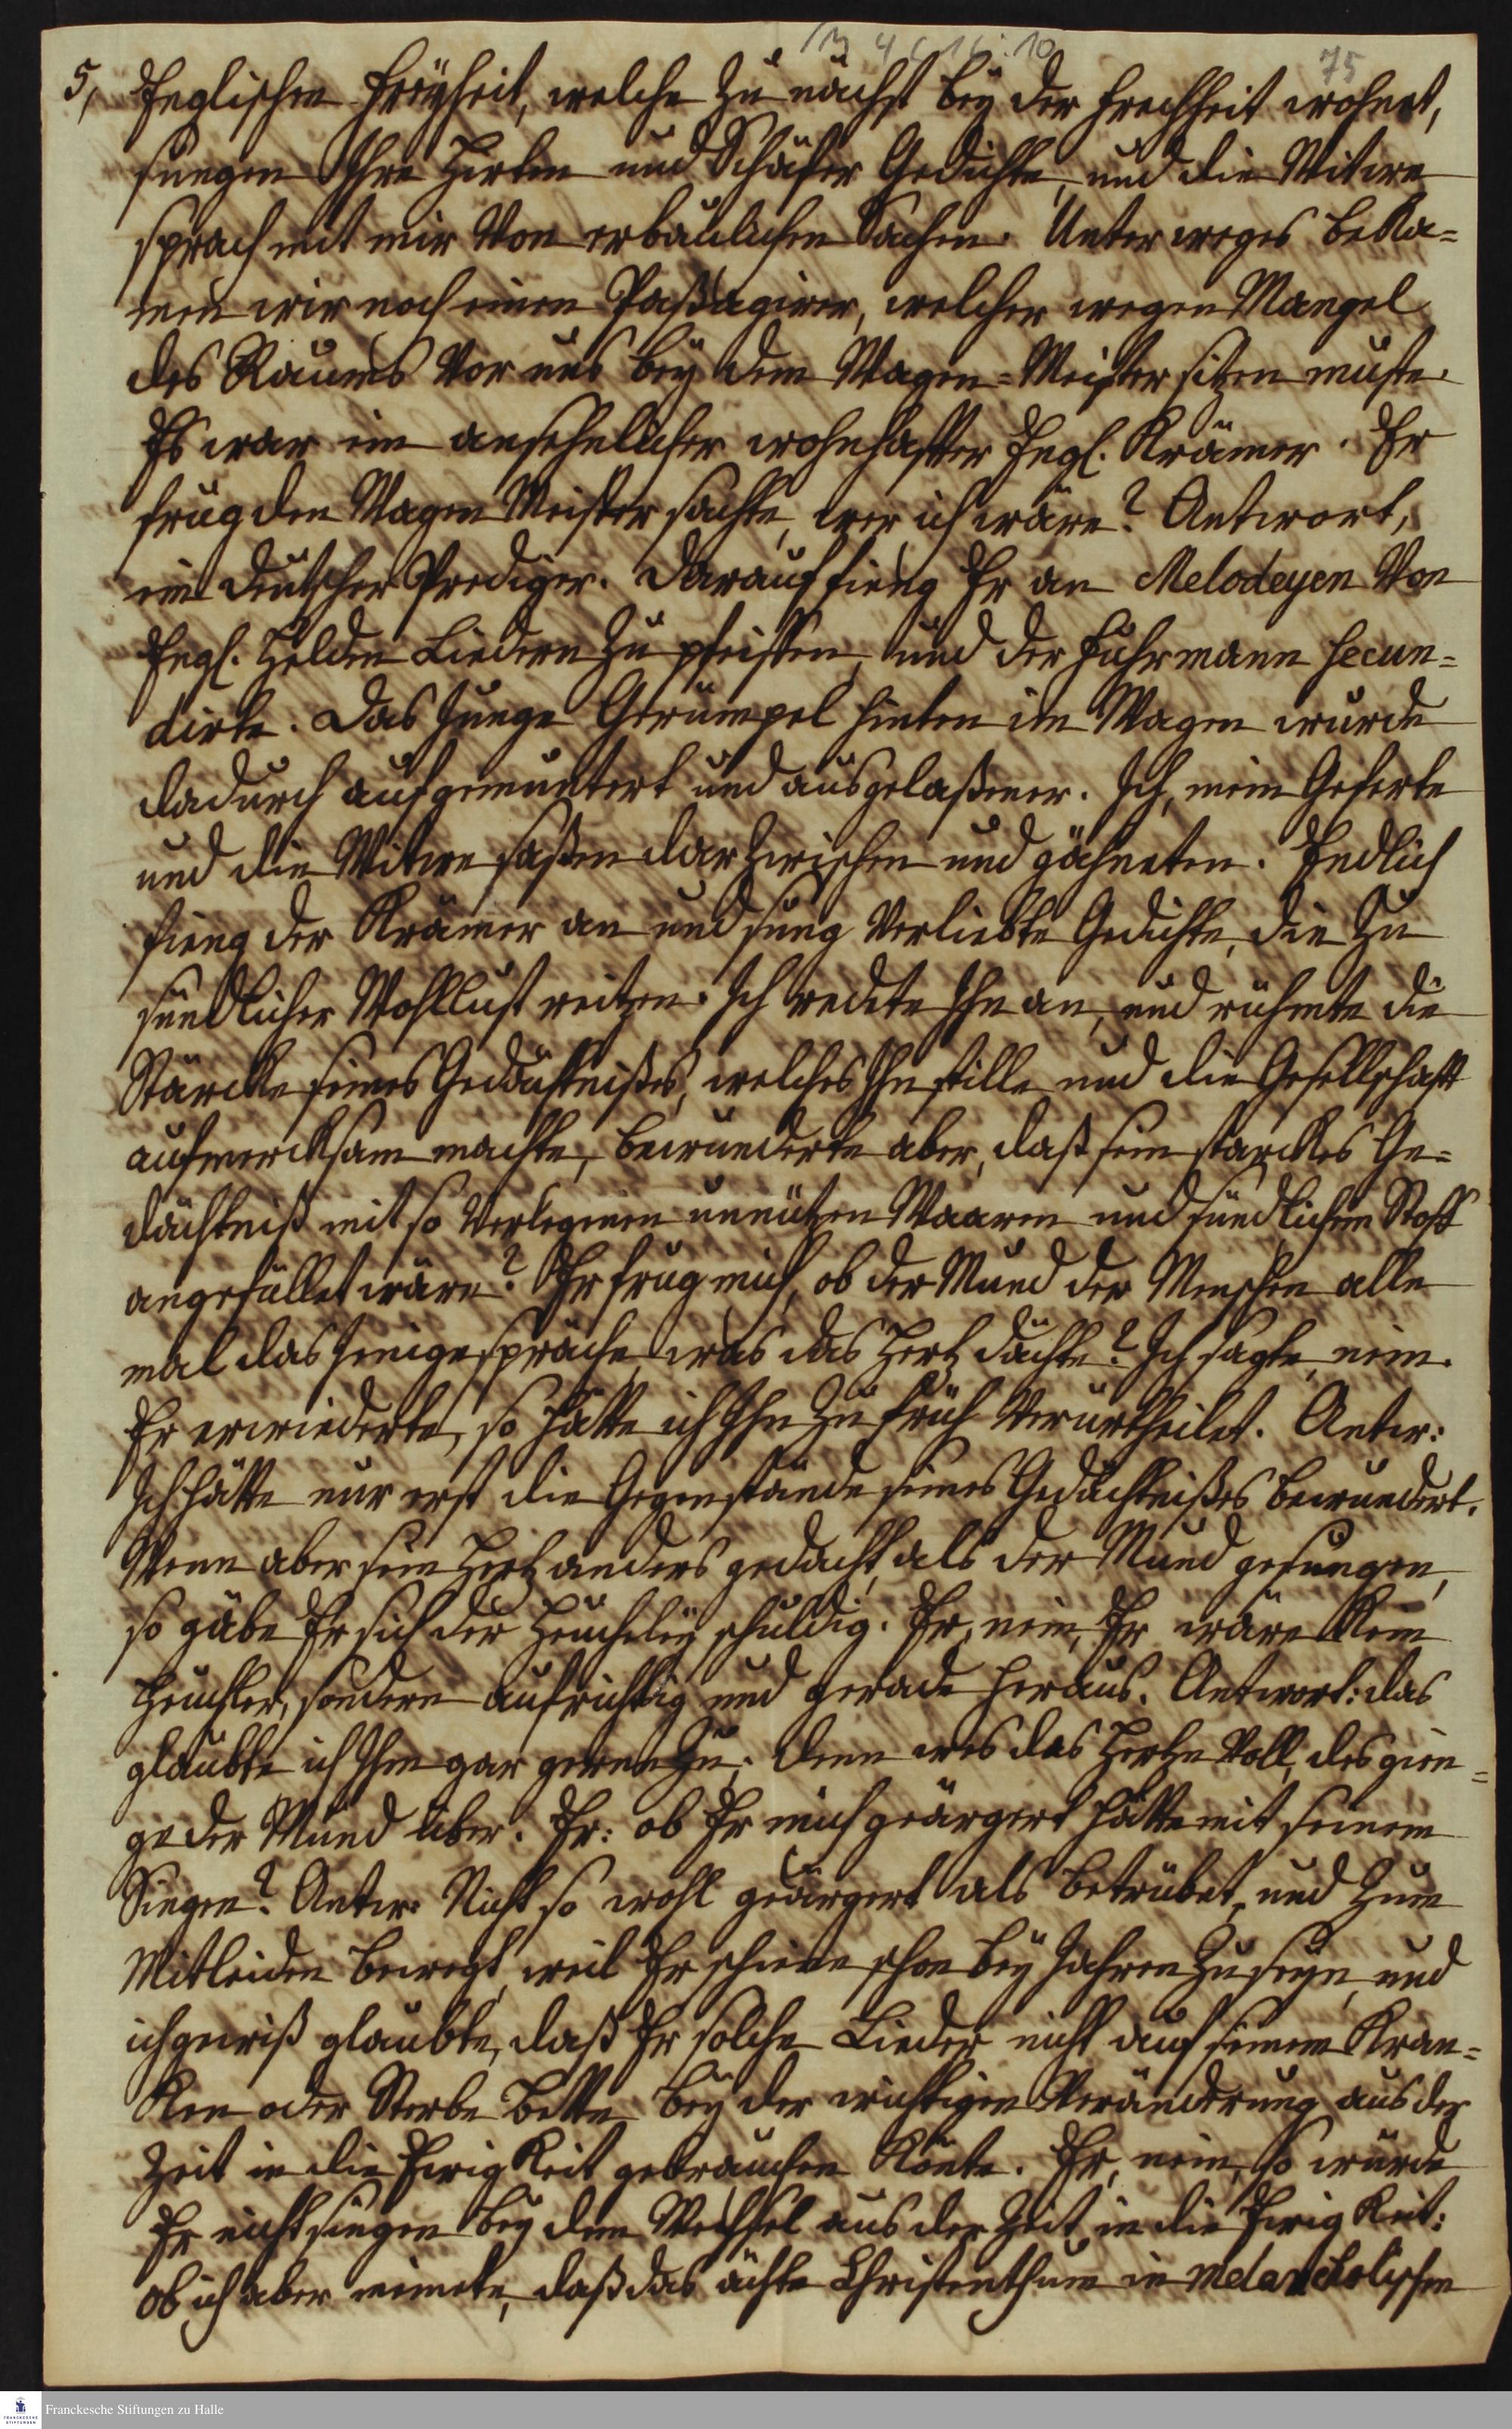 M 4 C 16 : 10
75
5, Englischen Freyheit, welche zu nächst bey der Frechheit wohnet,
sungen Ihre Hirten und Schäfer Gedichte, und die Witwe
sprach mit mir Von erbaulichen Sachen. Unter weges beka=
men wir noch einen Paßagirer, welcher wegen Mangel
des Raums Vor uns bey dem Wagen=Meister sitzen muste.
Es war ein ansehnlicher wohnhaffter Engl. Krämer. Er
frug den Wagen Meister sachte, wer ich wäre? Antwort,
ein deutscher Prediger. Darauf fieng Er an Melodeyen Von
Engl. Helden Liedern zu pfeiffen, und der Fuhrmann secun=
dirte. Das junge Gerümpel hinten im Wagen wurde
dadurch aufgemuntert und ausgelaßener. Ich, mein Geferte
und die Witwe saßen darzwischen und gähneten. Endlich
fieng der Krämer an und sung Verliebte Gedichte, die zu
sündlicher Wohllust reitzen. Ich redete Ihn an, und rühmte die
Stärcke seines Gedächtnißes, welches Ihn stille und die Gesellschafft
aufmercksam machte, bewunderte aber, daß sein starckes Ge=
dächtniß mit so Verlegenen unnützen Waaren und sündlichen Stoff
angefüllet wäre? Er frug mich, ob der Mund der Menschen alle
mal das jenige spräche, was das Hertz dächte? Ich sagte, nein.
Er erwiederte, so hätte ich Ihn zu früh Verurtheilet. Antw:
Ich hätte nur erst die Gegenstände seines Gedächtnißes bewundert.
Wenn aber sein Hertz anders gedacht, als der Mund gesungen,
so gäbe Er sich der Heucheley schuldig. Er, nein, Er wäre kein
Heuchler, sondern aufrichtig und gerade heraus. Antwort: das
glaubte ich Ihm gar gerne zu. Denn wes das Hertze Voll, des gien=
ge der Mund über. Er: ob Er mich geärgert hätte mit seinem
Singen? Antw: Nicht so wohl geärgert als betrübet, und zum
Mitleiden bewegt, weil Er schiene schon bey Jahren zu seyn, und
ich gewiß glaubte, daß Er solche Lieder nicht auf seinem Kran=
ken oder Sterbe Bette bey der wichtigen Veränderung aus der
Zeit in die Ewigkeit gebrauchen könte. Er, nein, so würde
Er nicht singen bey dem Wechsel aus der Zeit in die Ewigkeit:
ob ich aber meinete, daß das ächte Christenthum in melancholischen
Franckesche Stiftungen zu Halle